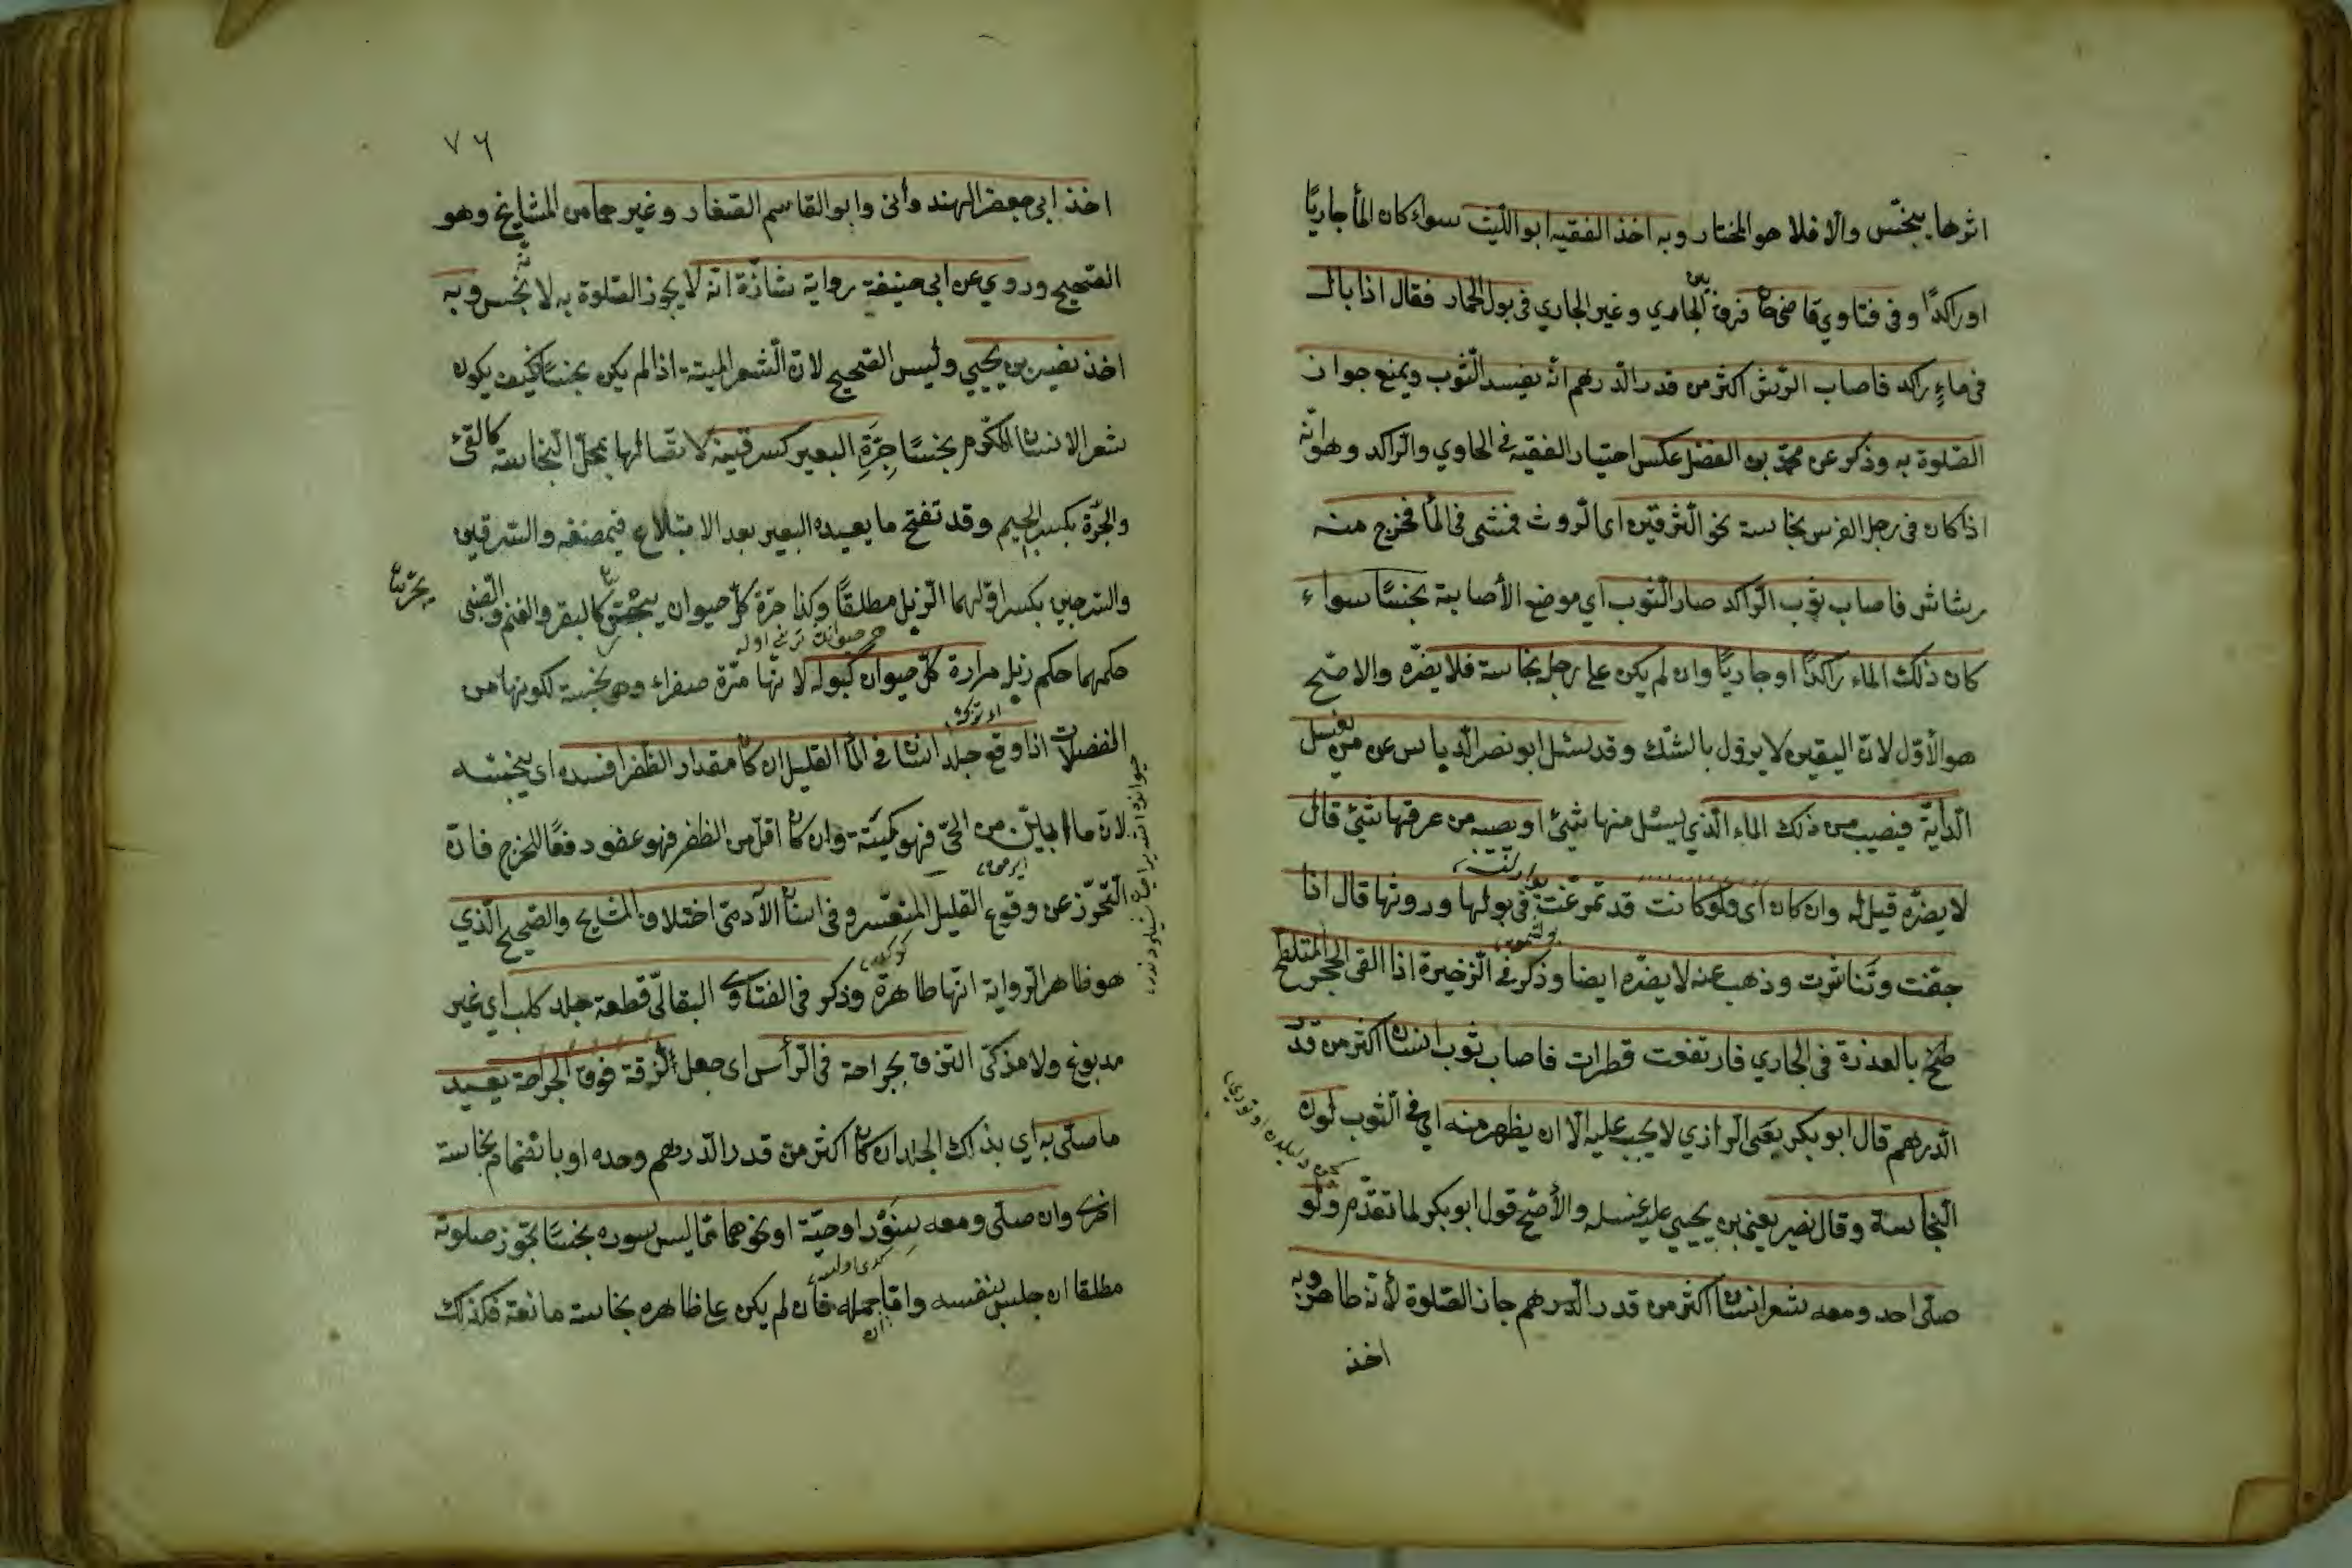 اثرها ينجّس والّا فلا هو المختار وبه اخذ الفقيه ابو اللّيث سواء كان المأ جاريًا
او راكدًا وفى فتاوي قاضيخان فرق بين الجاري وغير الجاري فى بول الحمار فقال اذا بال
فى ماءٍ راكد فاصاب الرّش اكثر من قدر الدّرهم انّه يفسد الثّوب ويمنع جواز
الصّلوة به وذكر عن محمّد بن الفضل عكس اختيار الفقيه فى الجاوي والرّاكد وهو انّه
اذا كان فى رجل الفرس نجاسة نحو السّرقين اى الرّوث فمشى فى المأ فخرج منه
رشاش فاصاب ثوب الرّاكد صار الثّوب اي موضع الأصابة نجسًا سواء
كان ذلك الماء راكدًا او جاريًا وان لم يكن على رجله نجاسة فلا يضرّه والاصّح
هو الأوّل لانّ اليقين لا يزول بالشّك وقد سئل ابو نصر الدّباس عن من يغسل
الدّابّة فيصيب من ذلك الماء الّذي يسئل منها شئ او يصيبه من عرقها شئ قال
لا يضرّه قيل له وان كان اى ولو كانت قد تمرّغت فى بولها وروثها قال اذا
جفّت وتناثرت وذهب عنه لا يضرّه ايضا وذكر فى الذّخيرة اذا القى الحجر المتلطّخ
طخ بالعذرة فى الجاري فارتفعت قطرات فاصاب ثوب انسان اكثر من قدر
الدّرهم قال ابو بكر يعنى الرازي لا يجب عليه الّا ان يظهر منه اي فى الثّوب لون
النّجاسة وقال نصير يعنى بن يحيي عليه غسله والأصّح قول ابو بكر لما تقدّم ولو
صلّى احد ومعه شعر انسان اكثر من قدر الدّرهم جاز الصّلوة لأنّه طاهر وبه
اخذ
٧٦
اخذ ابى جعفر الهندوأنى وابو القاسم الصّفار وغيرهما من المشايخ وهو
الصّحيح وروي عن ابى حنيفة رواية شاذّة انّه لا يجوز الصّلوة به لانّه نجس وبه
اخذ نصير بن يحيي وليس الصّحيح لانّ الشّعر الميتة اذا لم يكن نجسًا كيف يكون
شعر الانسان المكّرم نجسًا جِرَّةِ البعير كسرقينه لاتّصالها بمحلّ النّجاسة كالقئ
والجرّة بكسر الجيم وقد تفتح ما يعيده البعير بعد الابتلاع فيمضغه والسّرقين
والسّرجين بكسر اوّلهما الزّبل مطلقًا وكذا جرّة كلّ حيوان يجتّر كالبقر والغنم والضّبى
حكمهما حكم زبله مرارة كلّ حيوان كبوله لانّها مرّة صفراء وهى نجسة لكونها من
الفضلات اذا وقع جلد انسان فى المأ القليل ان كان مقدار الظّفر افسده اى ينجّسه
لانّ ما ابين من الحىّ فهو كميتة وان كان اقلّ من الظّفر فهو عفو دفعًا للحرج فانّ
التّحرّز عن وقوع القليل المتعّسر وفى اسنان الآدمىّ اختلاف المشايخ والصّحيح الّذي
هو ظاهر الرّواية انّها طاهرة وذكر فى الفتاوى البقالىّ قطعة جلد كلب اي غير
مدبوغ ولا مذكّى التزق بجراحة فى الرّأس اى جعل الزقة فوق الجراحة يعيد
ما صلّى به اي بذلك الجلد ان كان اكثر من قدر الدّرهم وحده او بانضمام نجاسة
اخرى وان صلّى ومعه سِنَوّر او حيّة او نحوهما ممّا ليس سوره نجسًا تجّوز صلوته
مطلقا ان جلس بنفسه وامّا ان حمله فان لم يكن على ظاهره نجاسة مانعة فكذلك